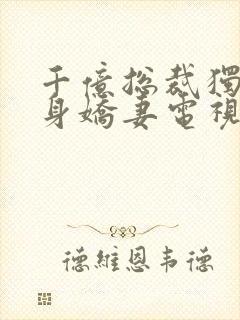 千億總裁獨
身嬌妻電視
德維恩韦德